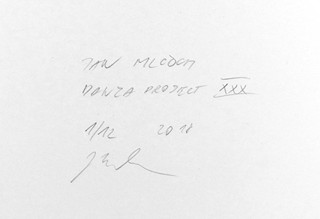 JAN MLČOCH
DANZA PROJECT XXX
1/12 2018